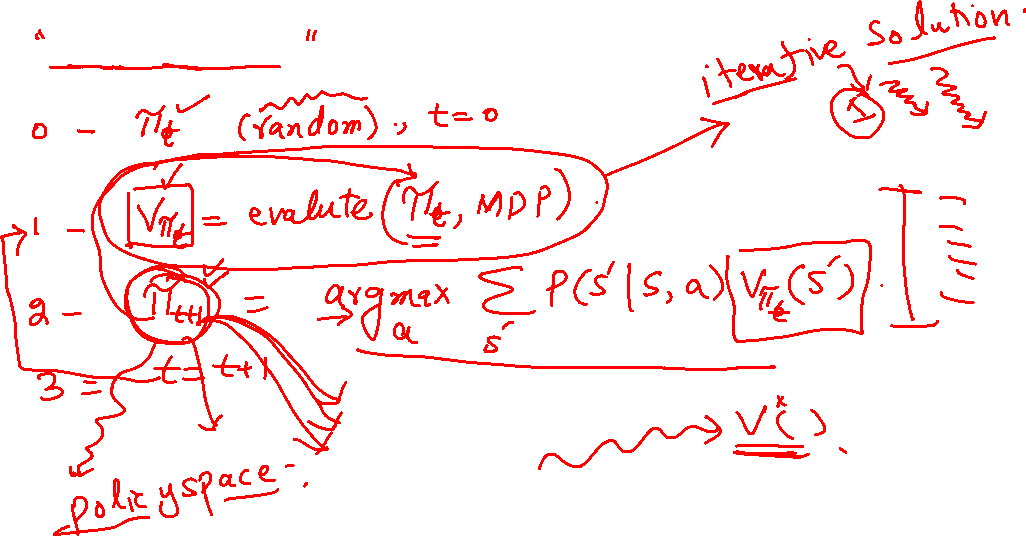 “ ”
iterative solution.
0 - π_t (random), t=0
I
1 - V_{π_t} = evalute (π_t, MDP)
2 - π_{t+1} = argmax_a Σ_{s'} P(s'|s,a) V_{π_t}(s')
3 = t = t+1
V*( ).
policy space